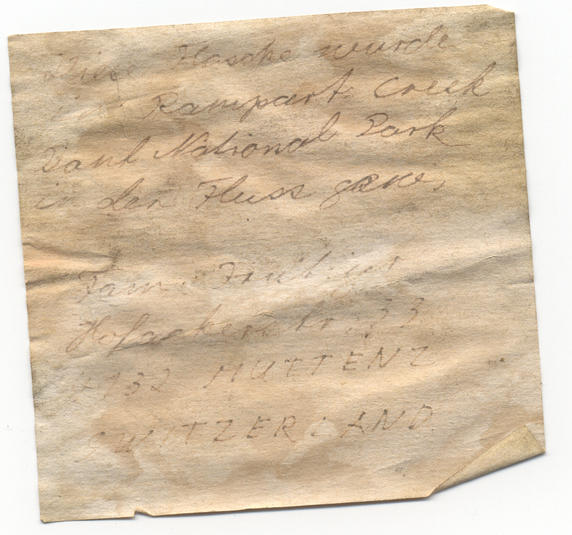 Diese Flasche wurde
Rampart Creek
Banf National Park
in den Fluss
Fam.
33
4132 MUTTENZ
SWITZERLAND